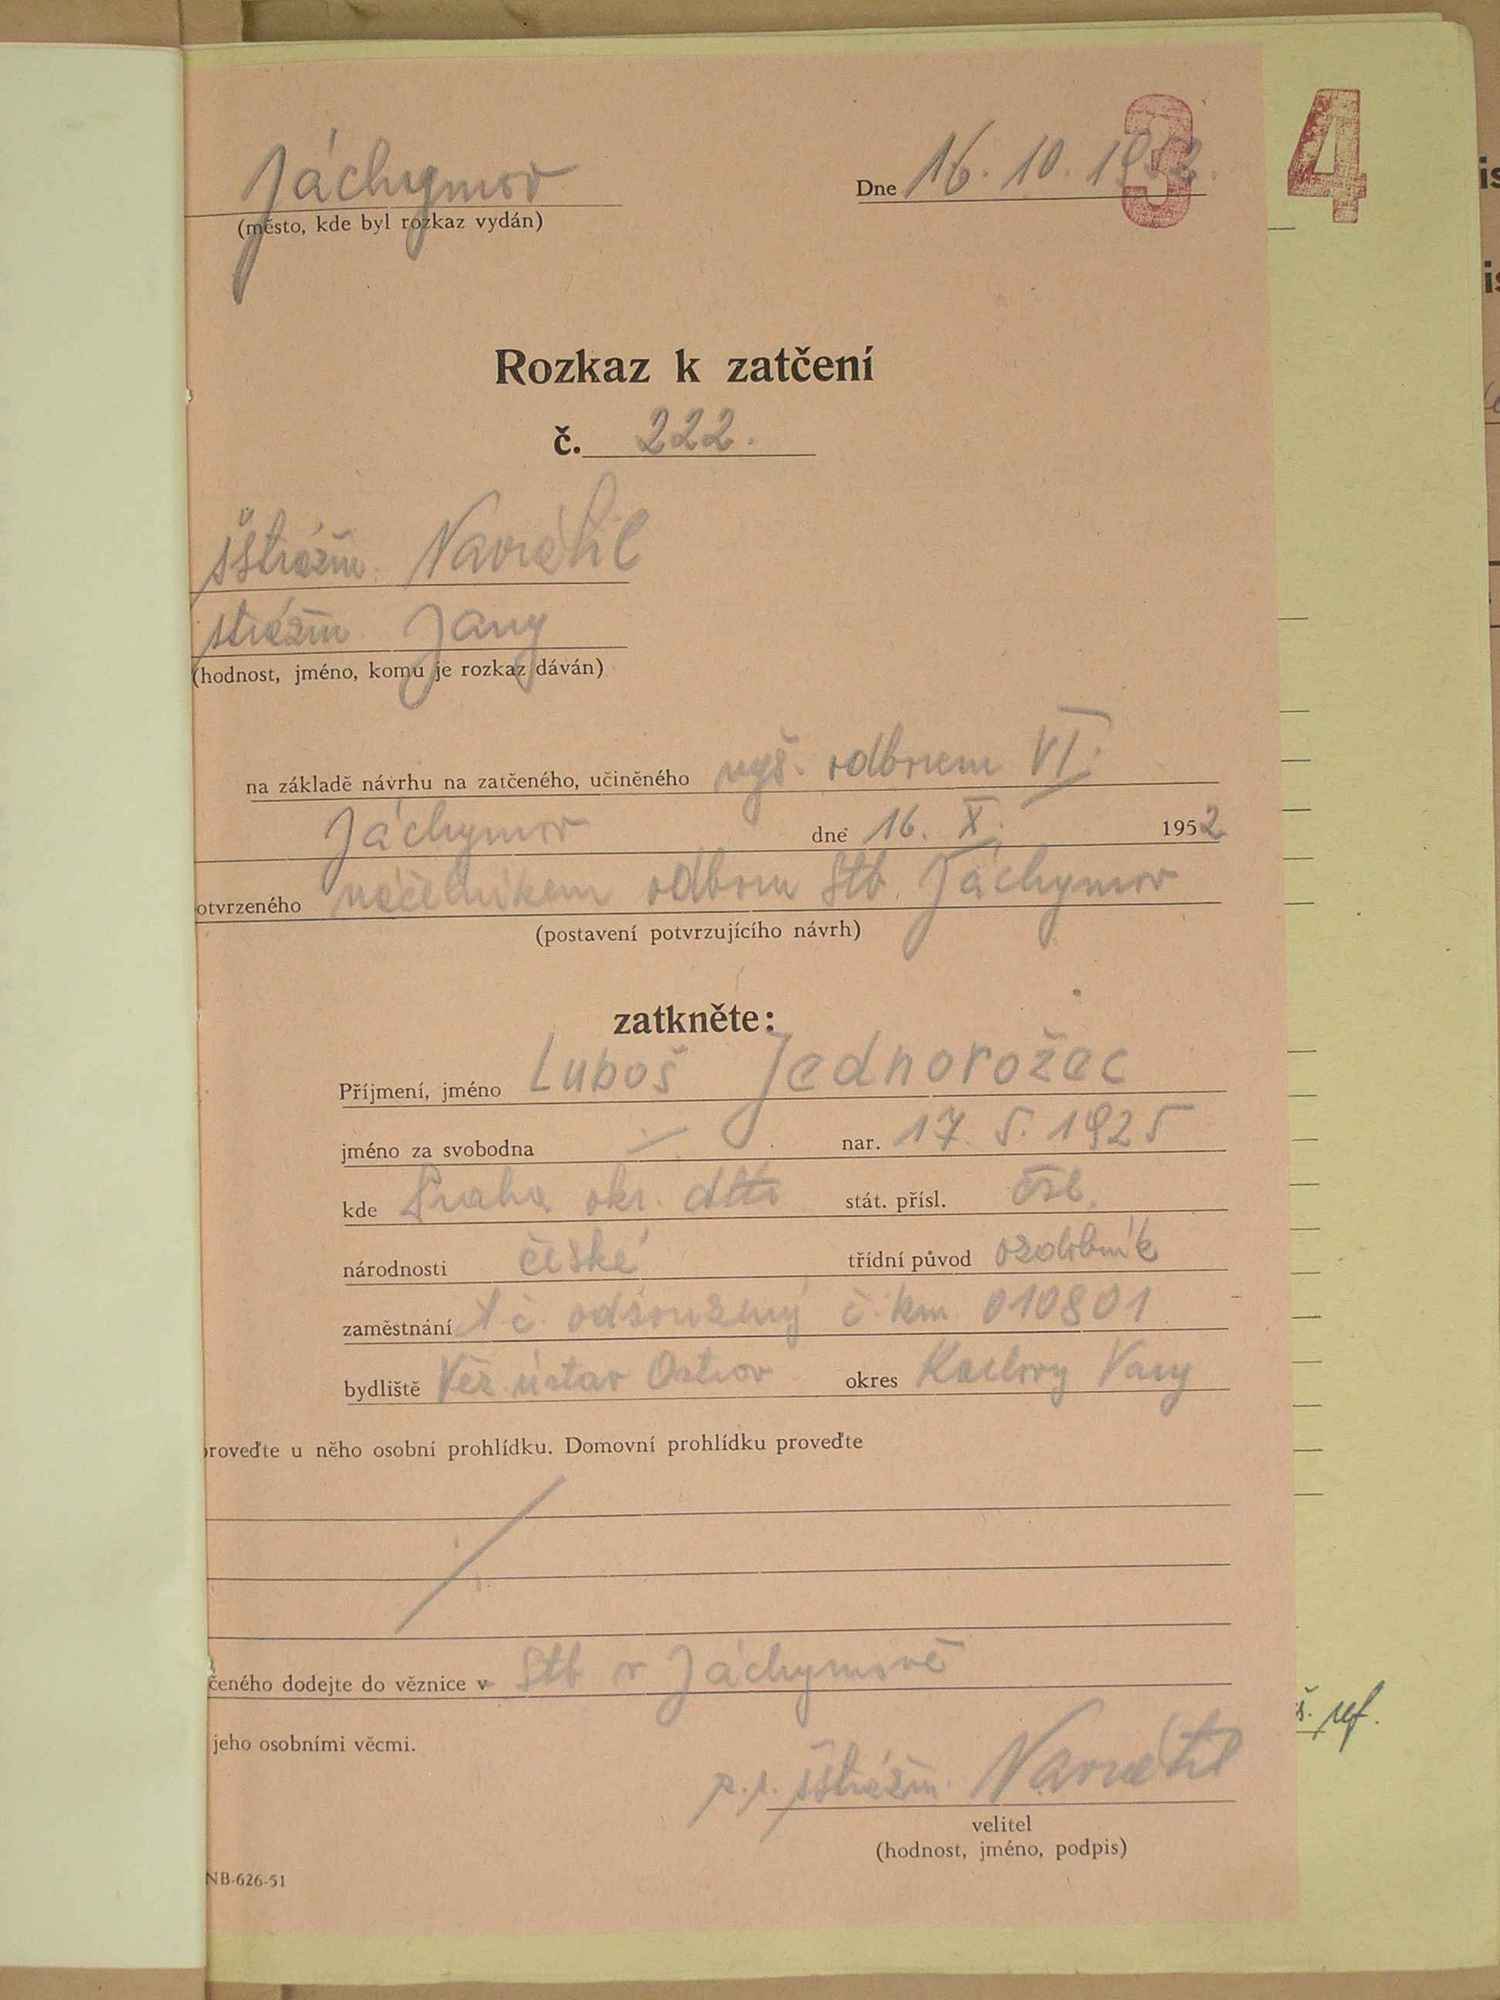 3 4
Jáchymov Dne 16. 10. 1952.
(město, kde byl rozkaz vydán)
Rozkaz k zatčení
č. 222.
šstrážm. Navrátil
strážm. Jany
(hodnost, jméno, komu je rozkaz dáván)
na základě návrhu na zatčeného, učiněného vyš. odborem VI.
Jáchymov dne 16. X. 1952
otvrzeného náčelníkem odboru Stb. Jáchymov
(postavení potvrzujícího návrh)
zatkněte:
Příjmení, jméno Luboš Jednorožec
jméno za svobodna nar. 17. 5. 1925
kde Praha okr. dtto stát. přísl. čsl.
národnosti české třídní původ ozdobník
zaměstnání t.č. odsouzený č. km. 010801
bydliště Věz. ústav Ostrov okres Karlovy Vary
proveďte u něho osobní prohlídku. Domovní prohlídku proveďte
čeného dodejte do věznice v Stb v Jáchymově
jeho osobními věcmi.
š. ref.
p.p. šstrážm. Navrátil
velitel
(hodnost, jméno, podpis)
NB-626-51